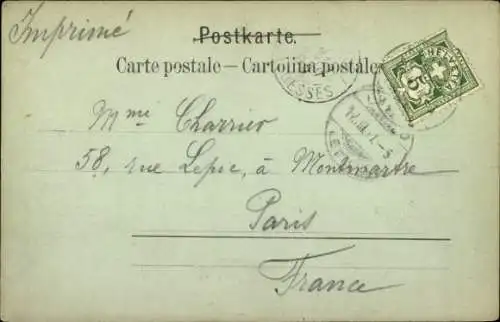 Imprimé
Postkarte.
Carte postale — Cartolina postale
HELVETIA
5
ESSES
Mme Charrier
58, rue Lepic, à Montmartre
Paris
France